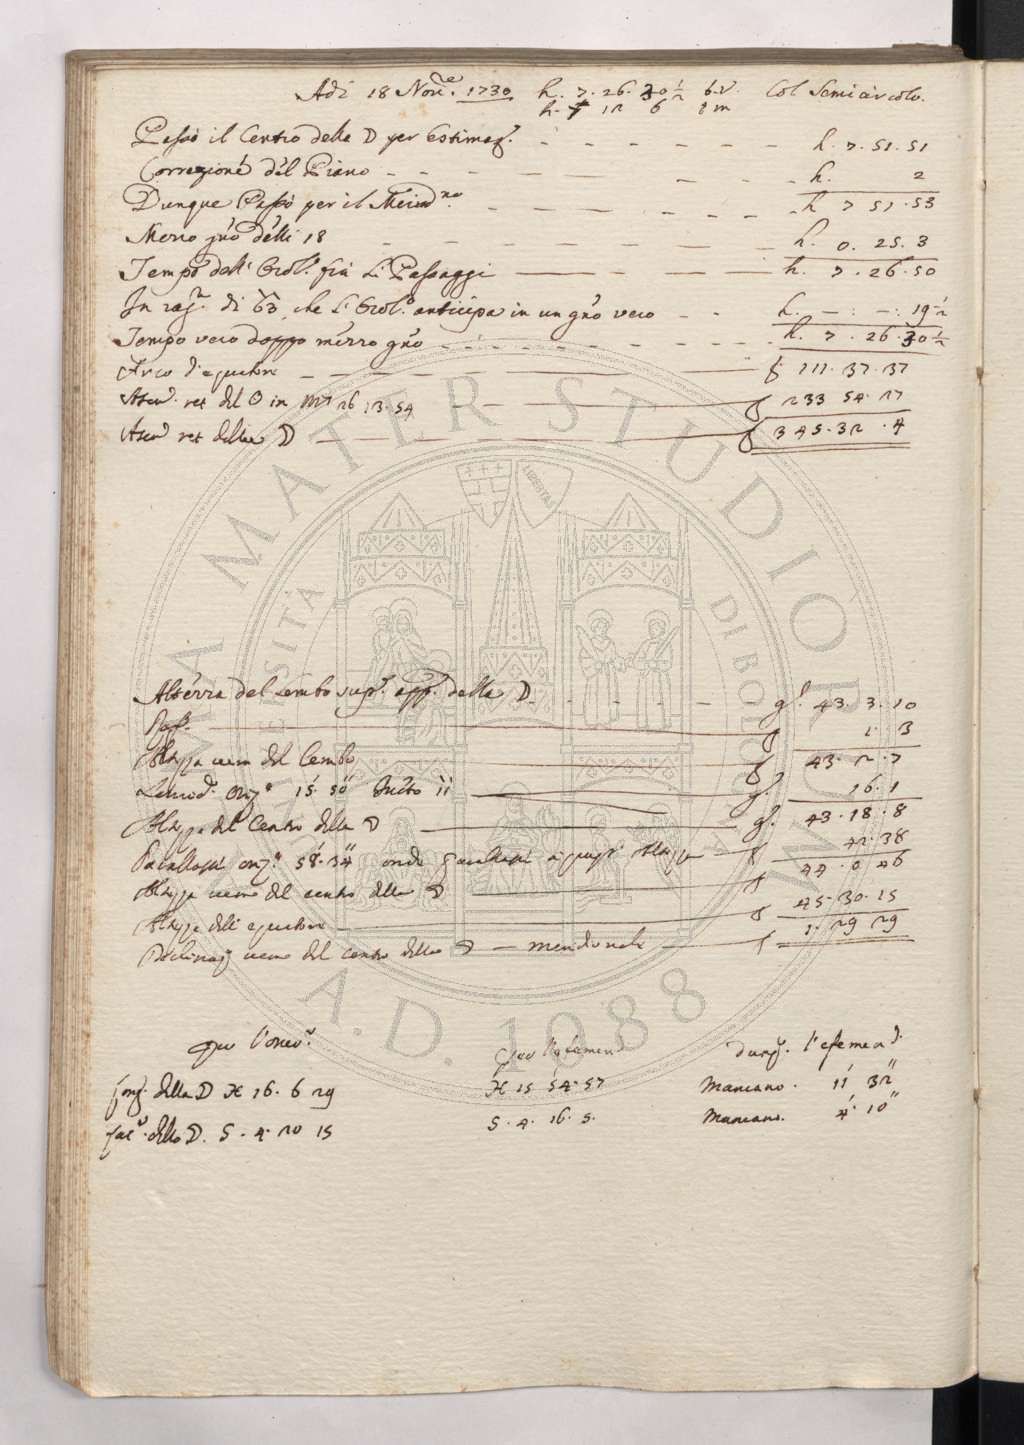 Adi 18 Nov.re 1730 h. 7. 26. 30 1/2 t.v. Col Semicircolo.
h. 7 12 6 t m
Passò il Centro della ☽ per Estimaz. h. 7. 51. 51
Correzione del Piano h. 2
Dunque Passò per il Merid.no h 7 51. 53
Mezzo g'no delli 18 h. 0. 25. 3
Tempo dell' Orol.o frà li Passaggi h. 7. 26. 50
In raz. di 63, che l'Orol.o anticipa in un g'no vero h. — : — : 19 1/2
Tempo vero doppo mezzo g'no h. 7. 26. 30 1/2
Arco d'equatore g 111. 37. 37
Asen. ret del ☉ in ♏ 26 13. 54 g 233 54. 27
Asen. ret della ☽ g 345. 32. 4
Altezza del lembo sup. app. della ☽ g. 43. 3. 10
Refr. 1. 3
Altezza vera del Lembo g 43. 2. 7
Semid. oriz. 15' 50" Subito 11 g. 16. 1
Altezza del Centro della ☽ g. 43. 18. 8
Parallasse oriz. 58'. 34" onde parallasse a quest' Altezza 42. 38
Altezza vera del centro della ☽ g 44. 0. 46
Altezza dell' equatore g 45. 30. 15
Declinaz vera del centro della ☽ — meridionale g 1. 29 29
Per l'oserv. Per l'efemerid. Dunq. l'efemerid.
Long. della ☽ ♓ 16. 6 29 ♓ 15 54. 57 Mancano. 11' 32"
Lat. della ☽. S. 4. 20 15 S. 4. 16. 5. Mancano. 4' 10"
ALMA MATER STUDIORUM
UNIVERSITÀ DI BOLOGNA
LIBERTAS
A.D. 1088